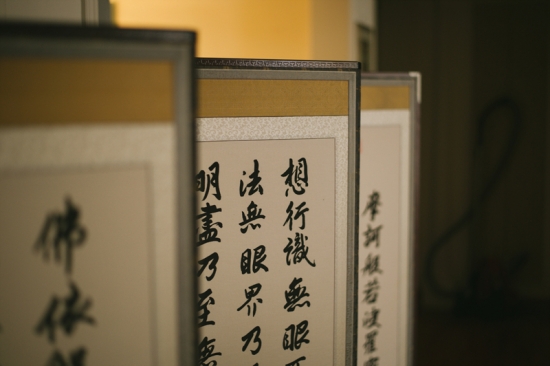 摩訶般若波羅
想行識無眼
法無眼界乃
明盡乃至無
佛依